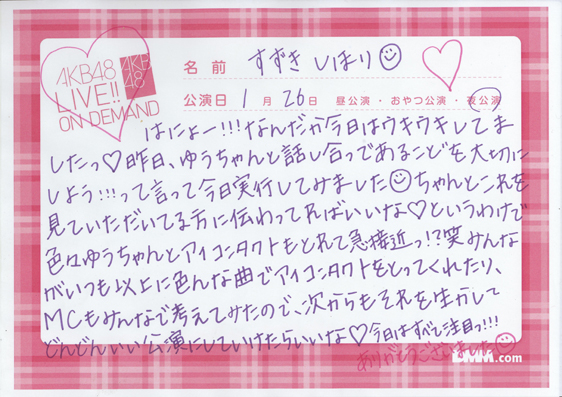 AKB48
LIVE!!
ON DEMAND
AKB
48
名前 すずき しほり
公演日 1月26日 昼公演・おやつ公演・夜公演
はにょー!!!なんだか今日はウキウキしてま
したっ♡昨日、ゆうちゃんと話し合ってあることを大切に
しよう!!!って言って今日実行してみました☺ちゃんとこれを
見ていただいてる方に伝わってればいいな♡というわけで
色々ゆうちゃんとアイコンタクトもとれて急接近っ!?笑みんな
がいつも以上に色んな曲でアイコンタクトをとってくれたり、
MCもみんなで考えてみたので、次からもそれを生かして
どんどんいい公演にしていけたらいいな♡今日はすべし注目っ!!!
ありがとうございました☺
DMM.com